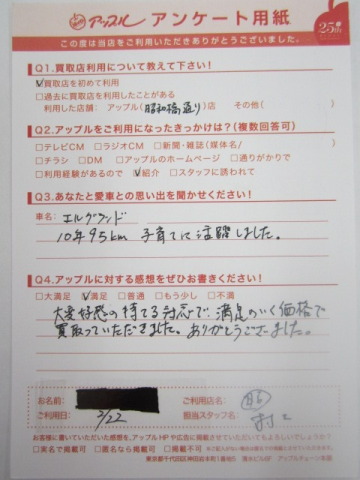 アップル アンケート用紙
25th
この度は当店をご利用いただきありがとうございました。
Q1.買取店利用について教えて下さい!
☑買取店を初めて利用
□過去に買取店を利用したことがある
利用した店舗: アップル(昭和橋通り)店 その他( )
Q2.アップルをご利用になったきっかけは?(複数回答可)
□テレビCM □ラジオCM □新聞・雑誌(媒体名/ )
□チラシ □DM □アップルのホームページ □通りがかりで
□利用経験があるので ☑紹介 □スタッフに誘われて
Q3.あなたと愛車との思い出を聞かせください!
車名: エルグランド
10年95km 子育てに活躍しました。
Q4.アップルに対する感想をぜひお書きください!
□大満足 ☑満足 □普通 □もう少し □不満
大変好感の持てる対応で、満足のいく価格で
買取っていただきました。ありがとうございました。
お名前: ご利用店名:
ご利用日: 3/22 担当スタッフ名:
お客様に書いていただいた感想を、アップルHPや広告に掲載させていただいてもよろしいでしょうか?
□実名で掲載可 □匿名なら掲載可 □掲載不可